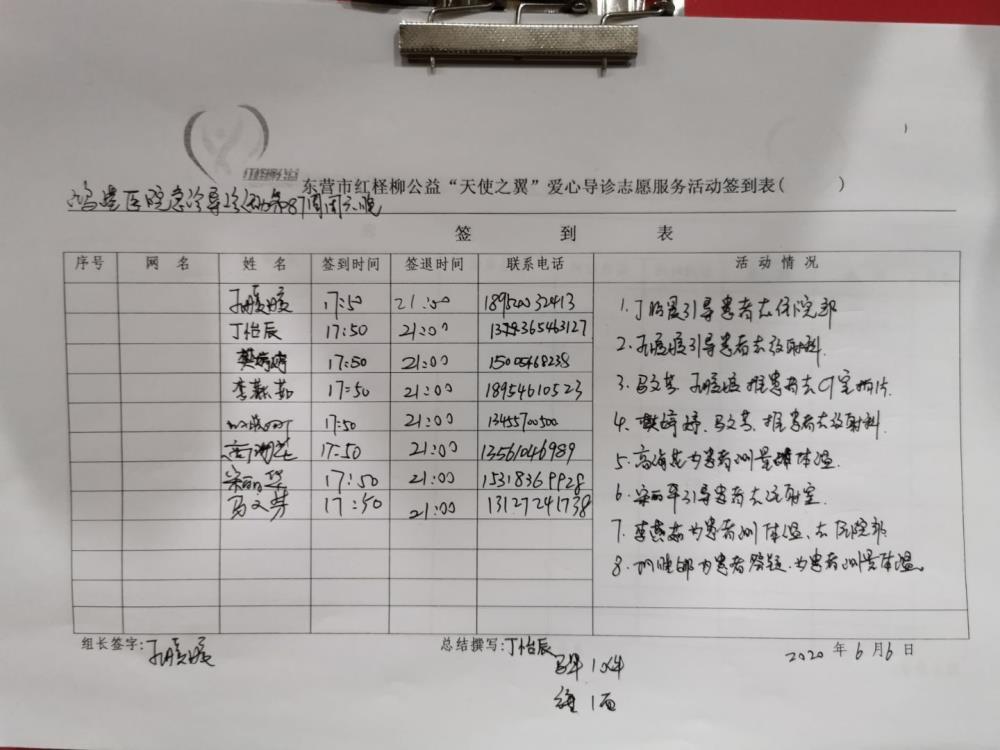 红柽柳公益
东营市红柽柳公益“天使之翼”爱心导诊志愿服务活动签到表( )
鸿港医院急诊导诊活动第87周周六晚
签 到 表
序号 网 名 姓 名 签到时间 签退时间 联系电话 活 动 情 况
17:50 21:00 18952032413
丁怡辰 17:50 21:00
樊婷婷 17:50 21:00 15005468238
李燕茹 17:50 21:00 18954610523
17:50 21:00 13455700500
高海花 17:50 21:00 13561046989
宋丽华 17:50 21:00 15318369928
马文芳 17:50 21:00 13127241738
1. 丁怡辰引导患者去住院部
2. 引导患者去放射科.
3. 马文芳、推患者去CT室拍片.
4. 樊婷婷、马文芳、推患者去放射科.
5. 高海花为患者测量体温.
6. 宋丽华引导患者去注射室.
7. 李燕茹为患者测体温、去住院部
8. 为患者答疑.为患者测量体温。
组长签字:
总结撰写:丁怡辰
2020 年 6 月 6 日